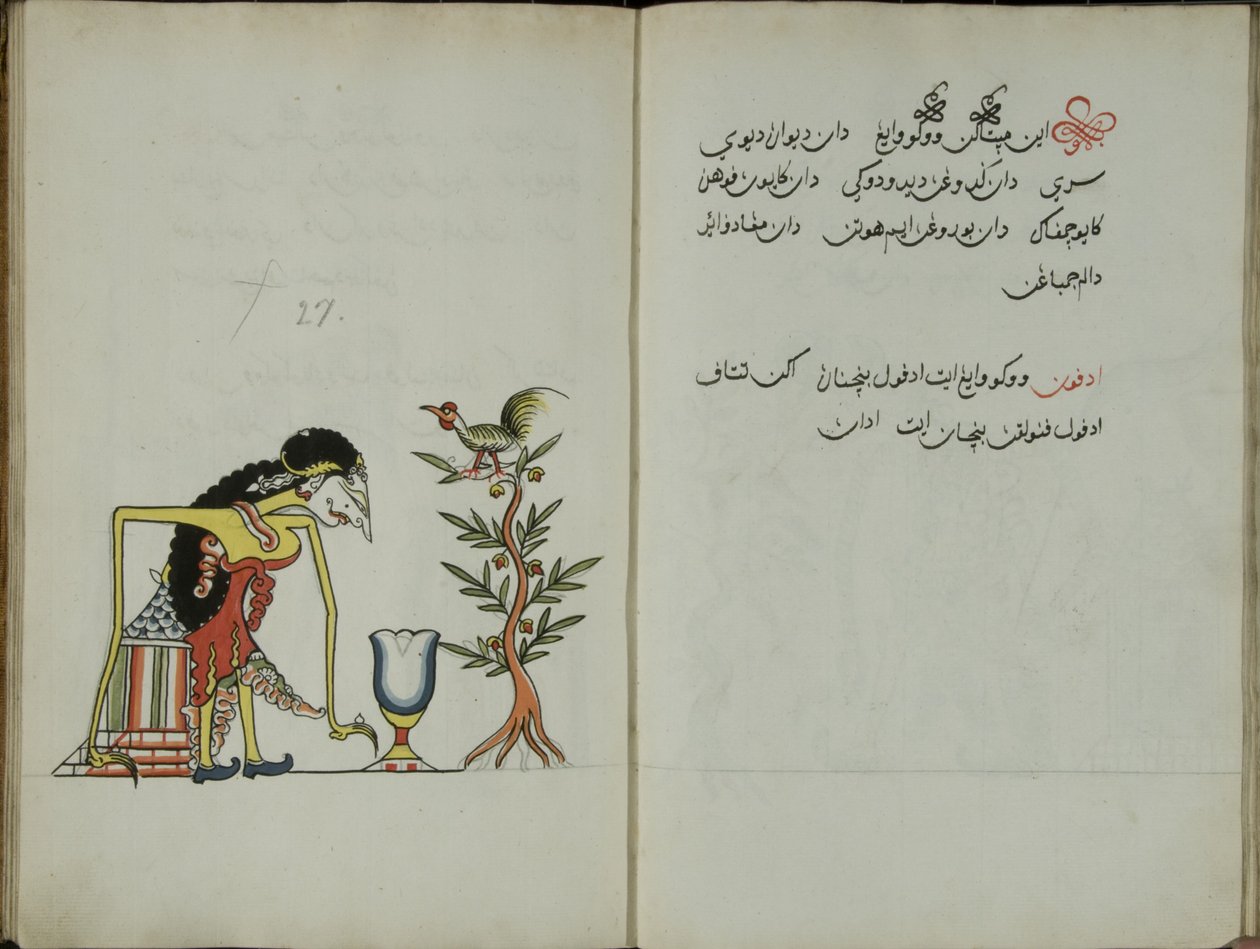 27.
اين مپتاکن ووکو وايڠ دان ديوان ديوي
سري دان ݢدوڠن ددودوکي دان کايون فوهن
کايو چمفاک دان بوروڠن ايم هوتن دان مڠادف اير
دالم جمباڠن
ادفون ووکو وايڠ ايت ادفول بنچنان اکن تتاف
ادفول فنولقن بنچان ايت ادان